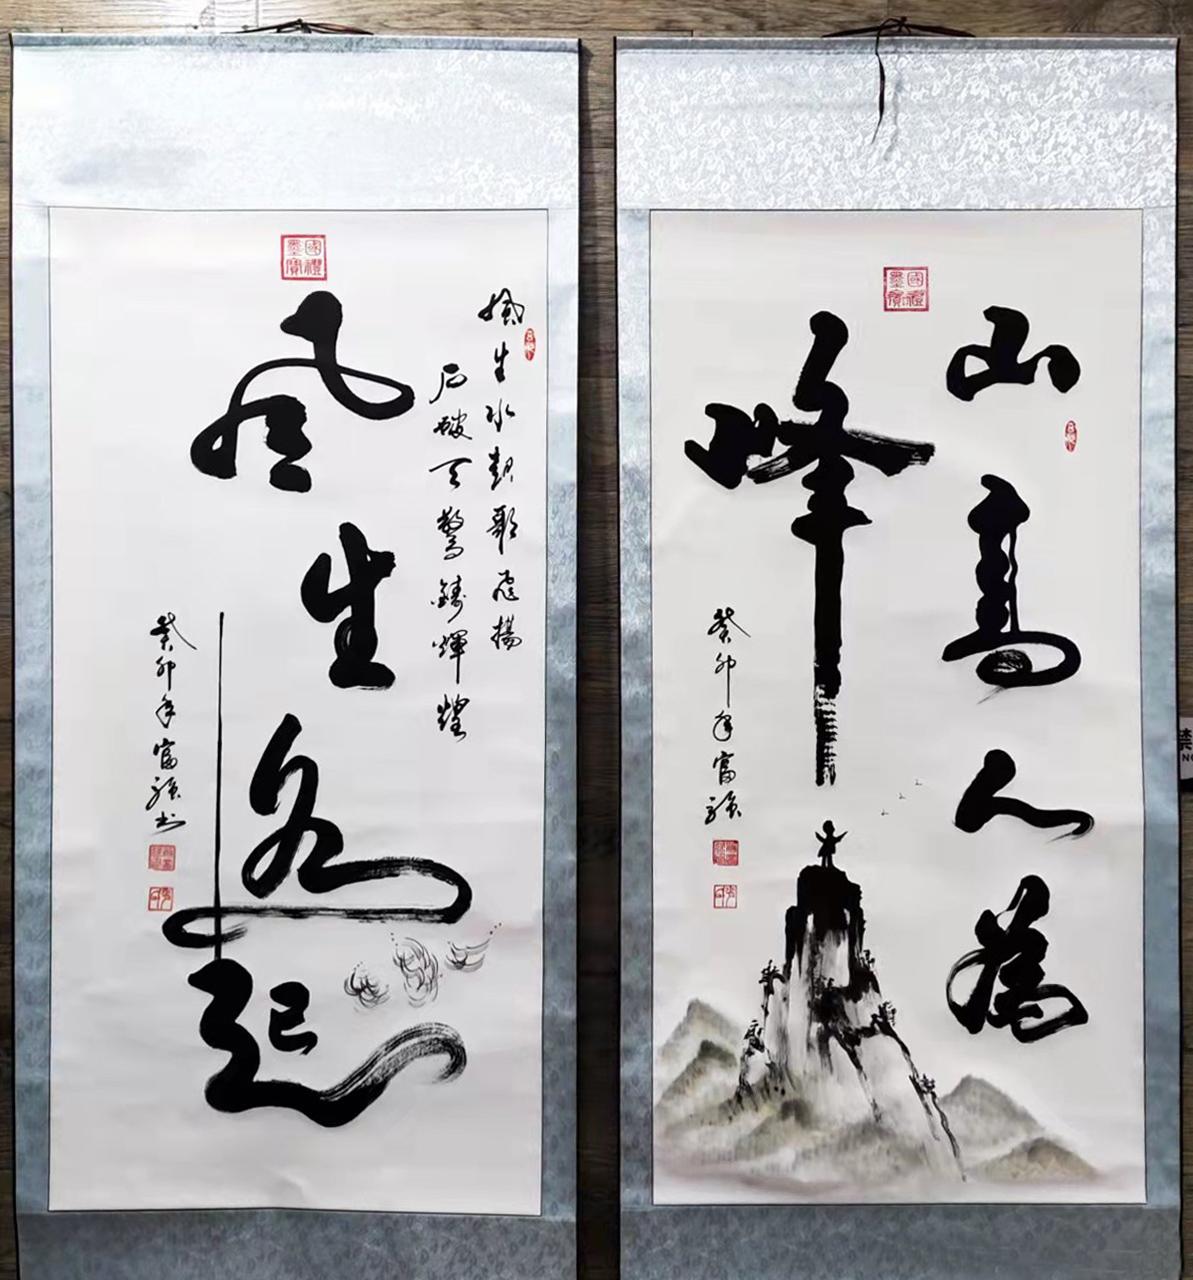 國禮墨寶
風生水起歌飛揚
石破天驚鑄輝煌
风生水起
癸卯年富强书
國禮墨寶
山高人為
峰
癸卯年富强
禁